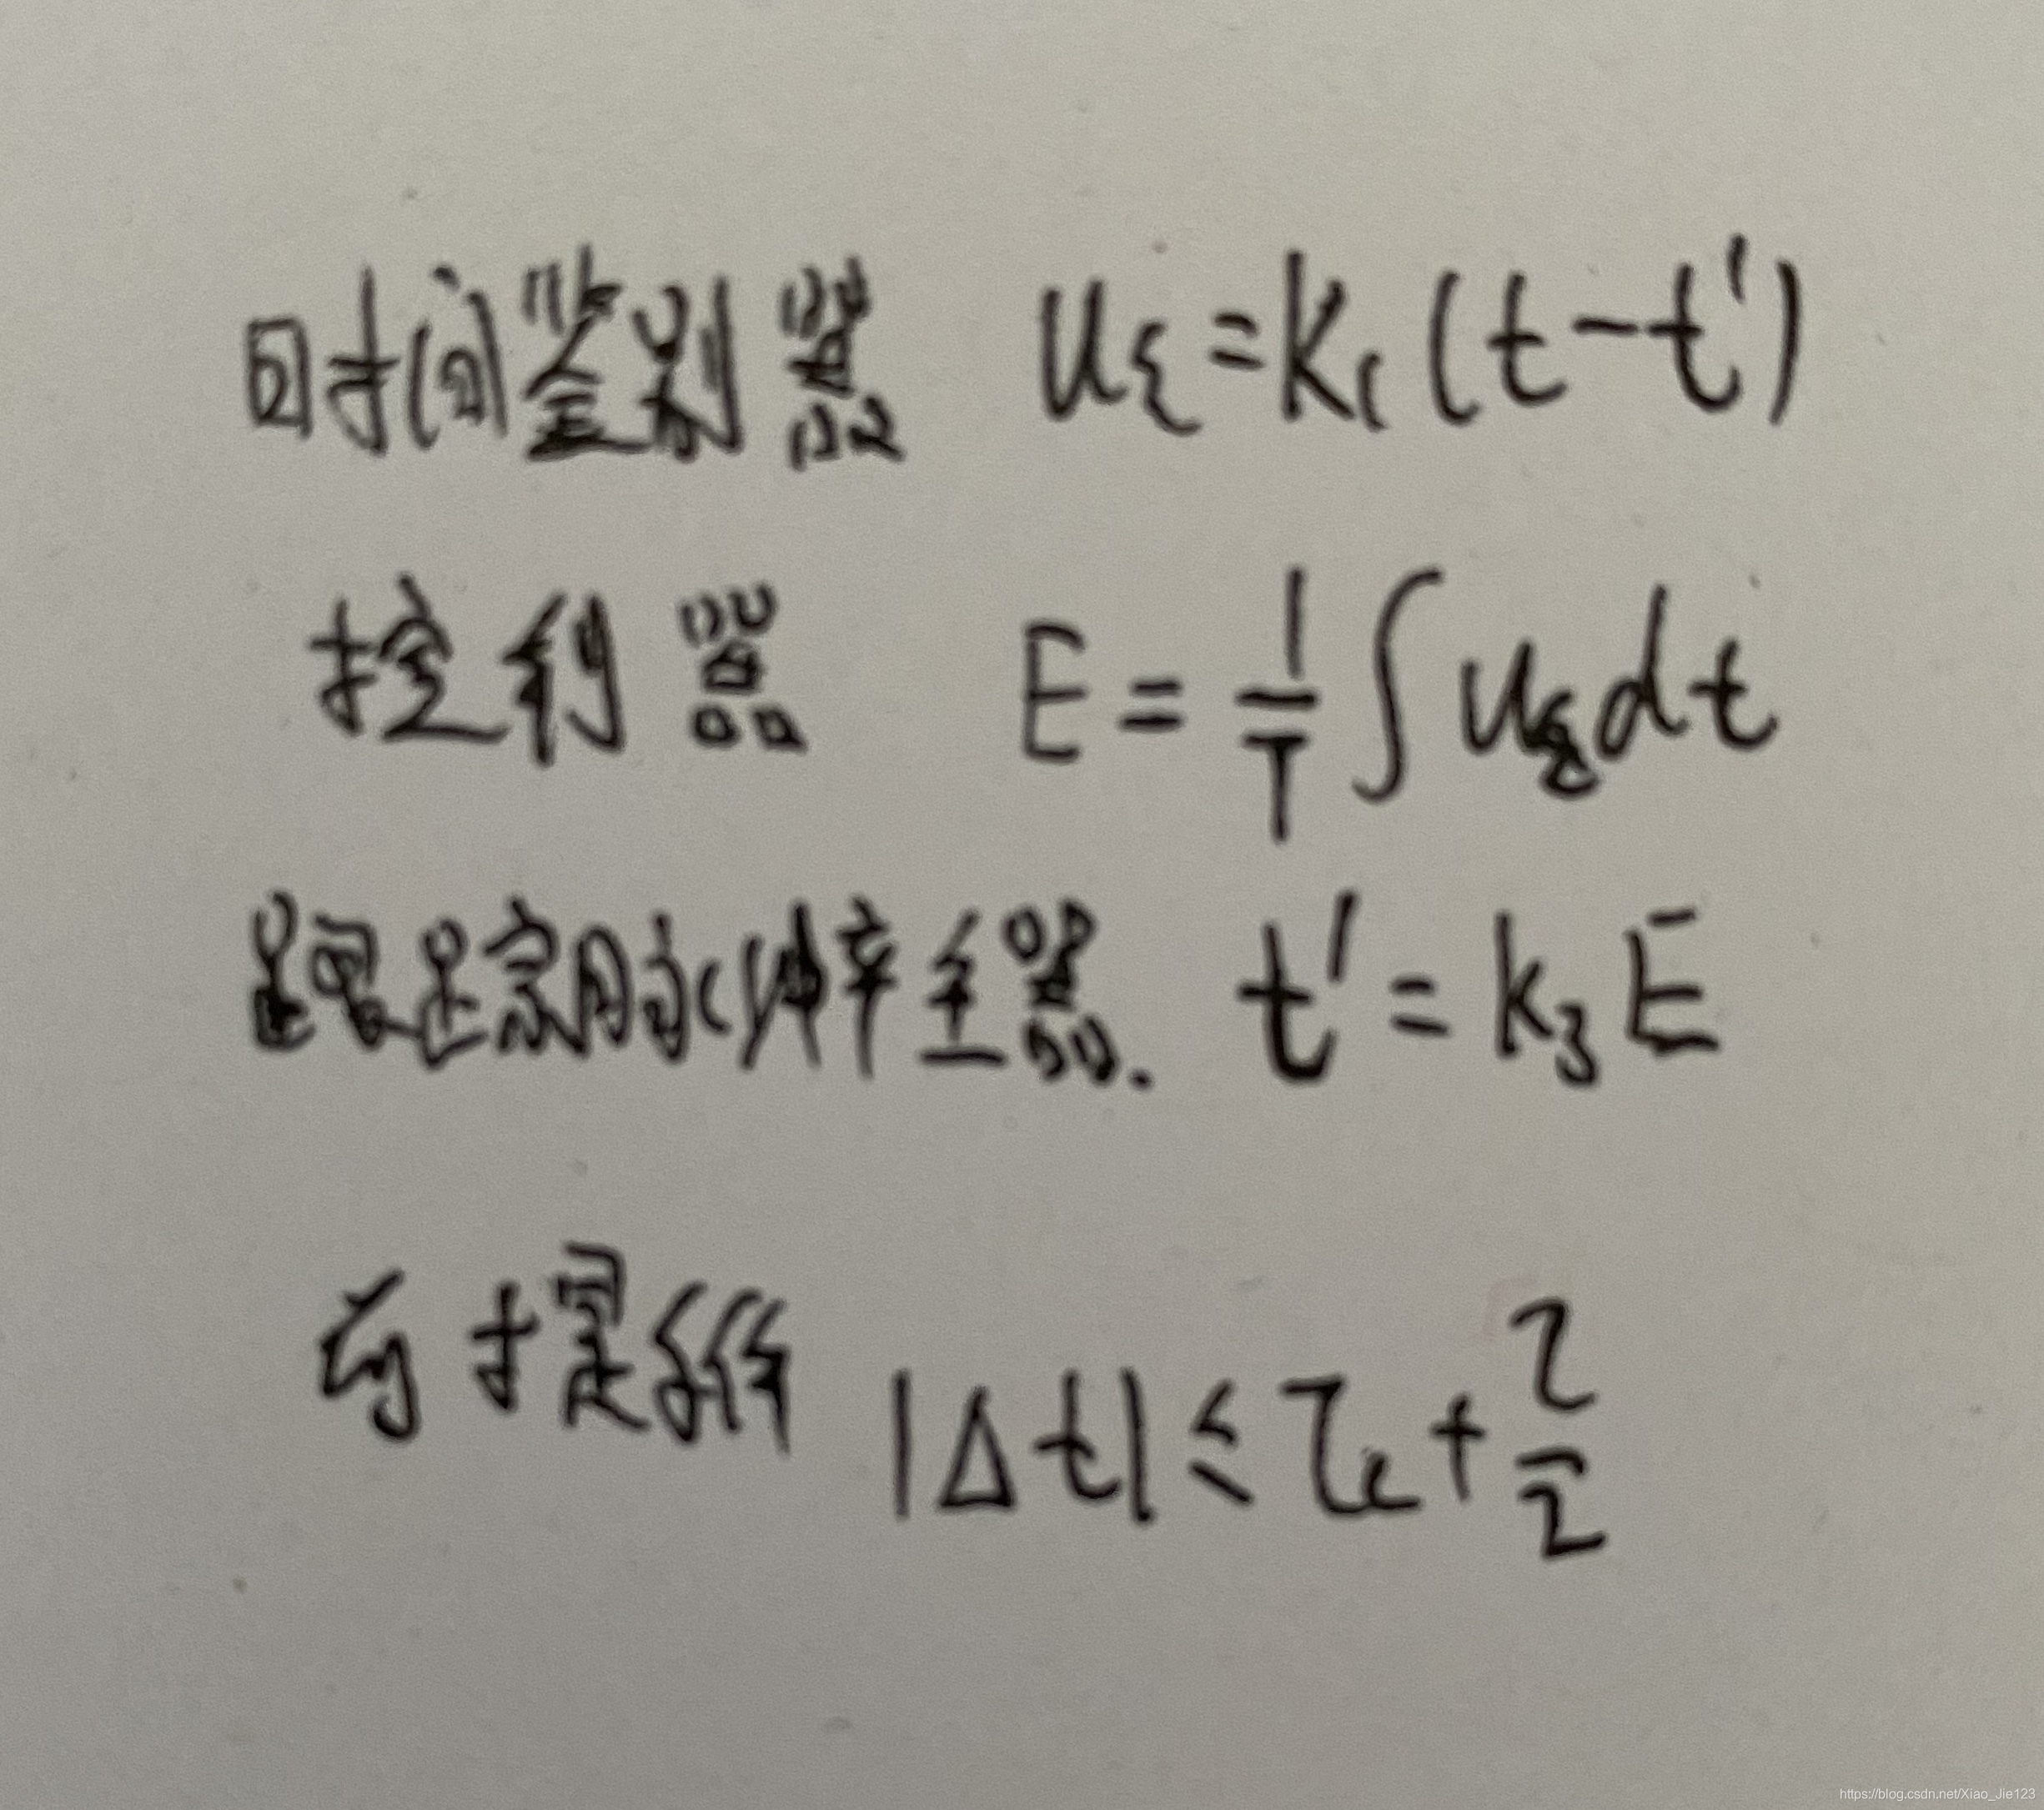 时间鉴别器 uε = K₁(t-t')
控制器 E = 1/T ∫uεdt
跟踪脉冲产生器. t' = K₃E
有提纤 |Δt| ≤ τc + τ/2
https://blog.csdn.net/Xiao_Jie123